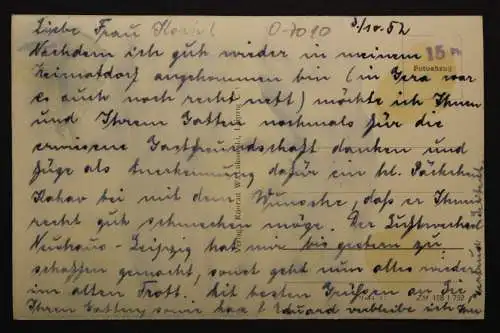 Liebe Frau
O-7010
3/10.52
Nachdem ich gut wieder in meinem
15 Pf
Fotoabzug
Heimatdorf angekommen bin (in Gera war
es auch noch recht nett) möchte ich Ihnen
und Ihrem Gatten nochmals für die
erwiesene Gastfreundschaft danken und
füge als Anerkennung dafür ein kl. Päckchen
Kakao bei mit dem Wunsche, daß er Ihnen
recht gut schmecken möge. Der Luftwechsel
Neuhaus - Leipzig hat mir bis gestern zu
schaffen gemacht, sonst geht nun alles wieder
im alten Trott. Mit besten Grüßen an Sie,
Ihren Gatten sowie Eduard verbleibe ich Ihr